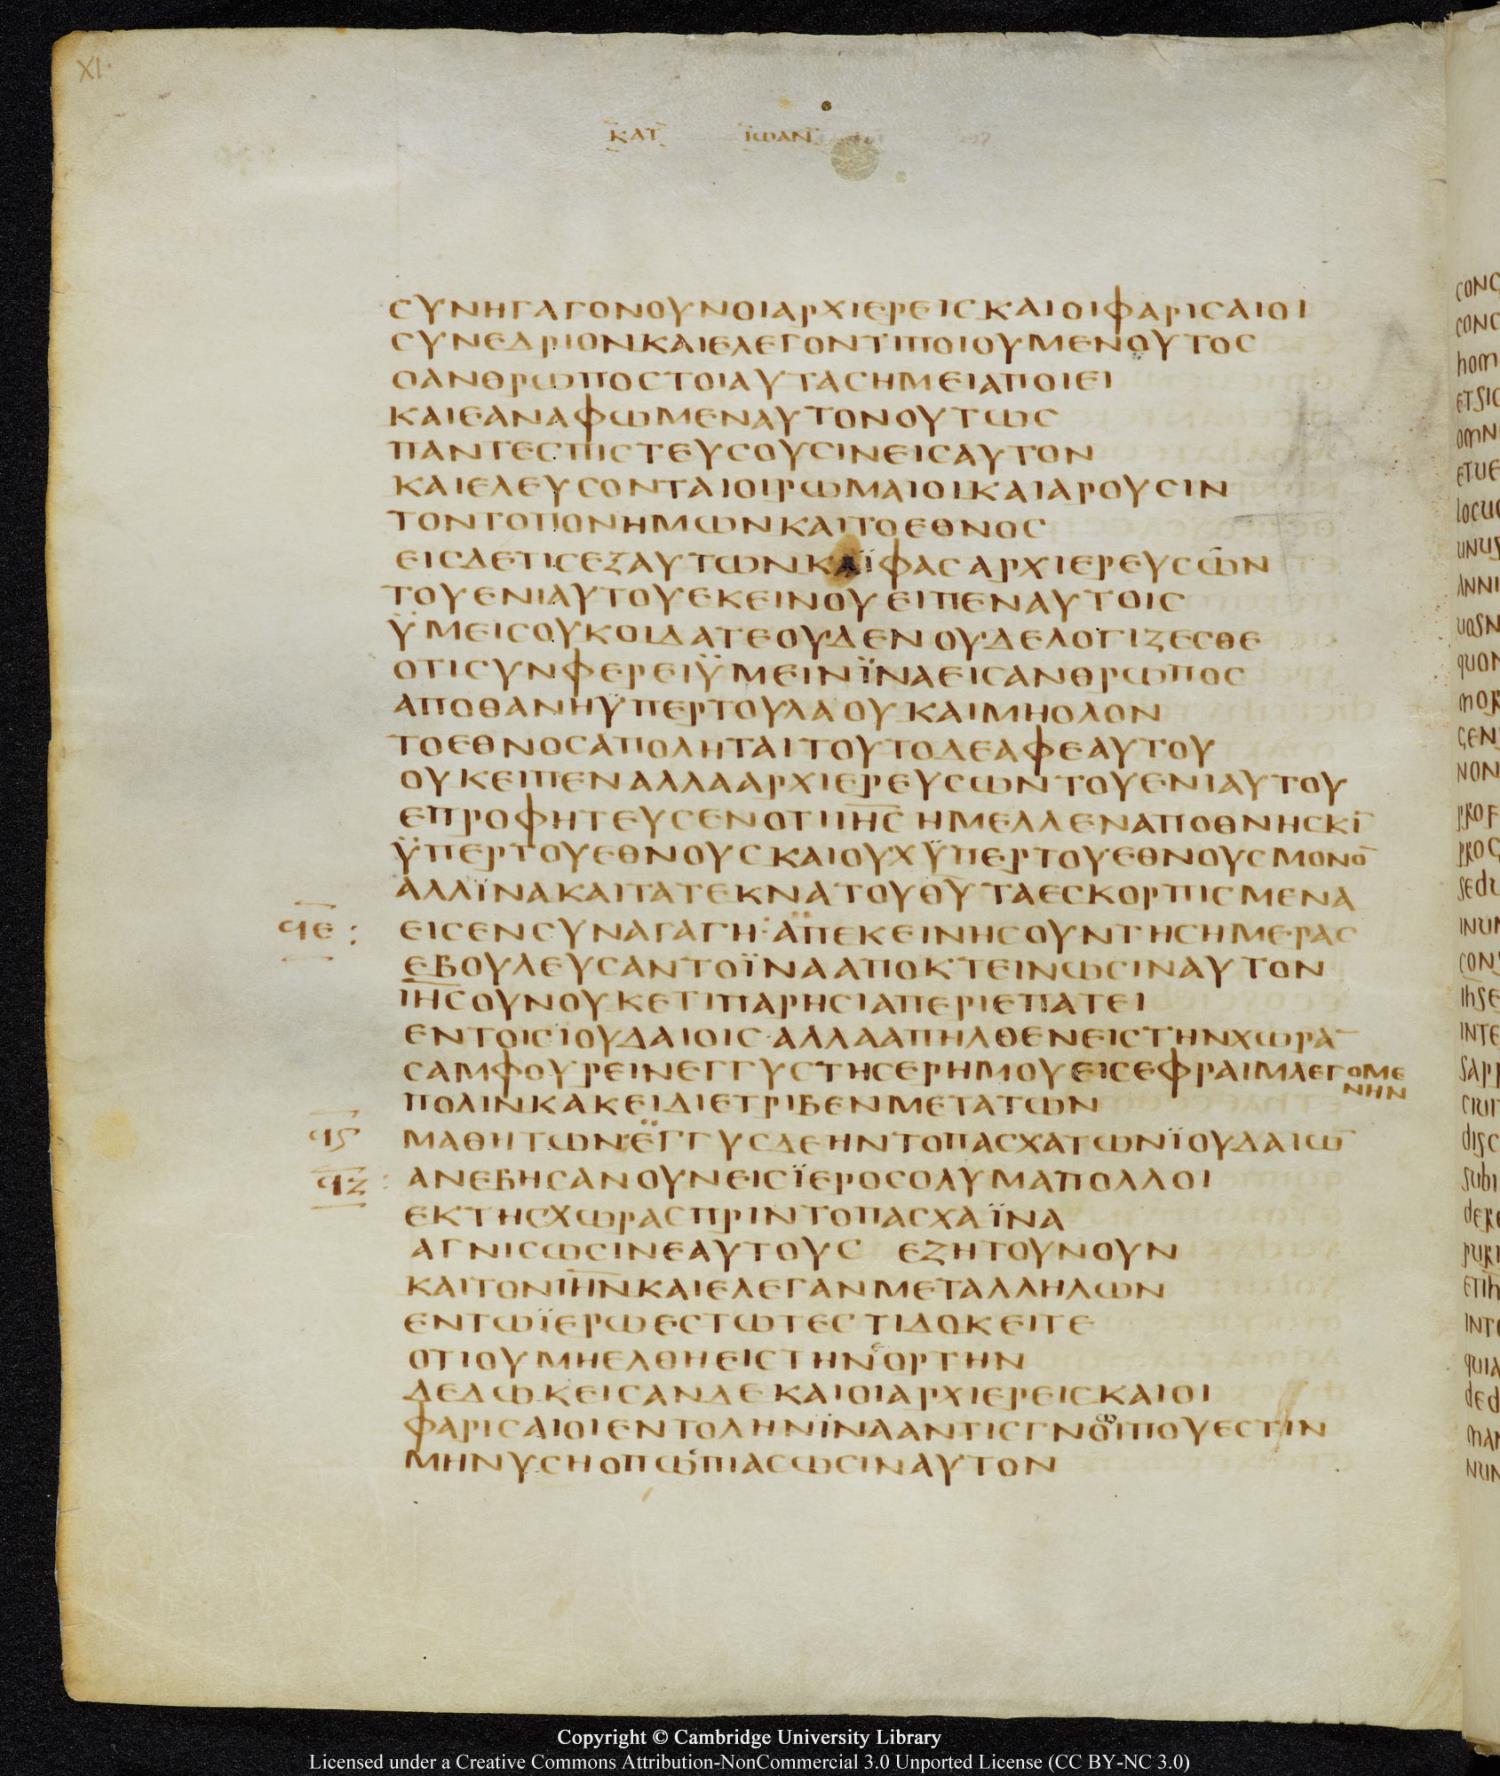 XI·
ΚΑΤ ΙΩΑΝ
ϹΥΝΗΓΑΓΟΝΟΥΝΟΙΑΡΧΙΕΡΕΙϹΚΑΙΟΙΦΑΡΙϹΑΙΟΙ
ϹΥΝΕΔΡΙΟΝΚΑΙΕΛΕΓΟΝΤΙΠΟΙΟΥΜΕΝΟΥΤΟϹ
ΟΑΝΘΡΩΠΟϹΤΟΙΑΥΤΑϹΗΜΕΙΑΠΟΙΕΙ
ΚΑΙΕΑΝΑΦΩΜΕΝΑΥΤΟΝΟΥΤΩϹ
ΠΑΝΤΕϹΠΙϹΤΕΥϹΟΥϹΙΝΕΙϹΑΥΤΟΝ
ΚΑΙΕΛΕΥϹΟΝΤΑΙΟΙΡΩΜΑΙΟΙΚΑΙΑΡΟΥϹΙΝ
ΤΟΝΤΟΠΟΝΗΜΩΝΚΑΙΤΟΕΘΝΟϹ
ΕΙϹΔΕΤΙϹΕΖΑΥΤΩΝΚΑΪΦΑϹΑΡΧΙΕΡΕΥϹΩΝ
ΤΟΥΕΝΙΑΥΤΟΥΕΚΕΙΝΟΥΕΙΠΕΝΑΥΤΟΙϹ
ΫΜΕΙϹΟΥΚΟΙΔΑΤΕΟΥΔΕΝΟΥΔΕΛΟΓΙΖΕϹΘΕ
ΟΤΙϹΥΝΦΕΡΕΙΫΜΕΙΝΪΝΑΕΙϹΑΝΘΡΩΠΟϹ
ΑΠΟΘΑΝΗΫΠΕΡΤΟΥΛΑΟΥΚΑΙΜΗΟΛΟΝ
ΤΟΕΘΝΟϹΑΠΟΛΗΤΑΙΤΟΥΤΟΔΕΑΦΕΑΥΤΟΥ
ΟΥΚΕΙΠΕΝΑΛΛΑΑΡΧΙΕΡΕΥϹΩΝΤΟΥΕΝΙΑΥΤΟΥ
ΕΠΡΟΦΗΤΕΥϹΕΝΟΤΙΙΗ̅Ϲ̅ΗΜΕΛΛΕΝΑΠΟΘΝΗϹΚΙ̅
ΫΠΕΡΤΟΥΕΘΝΟΥϹΚΑΙΟΥΧΫΠΕΡΤΟΥΕΘΝΟΥϹΜΟΝΟ̅
ΑΛΛΪΝΑΚΑΙΤΑΤΕΚΝΑΤΟΥΘ̅Υ̅ΤΑΕϹΚΟΡΠΙϹΜΕΝΑ
ϤΕ: ΕΙϹΕΝϹΥΝΑΓΑΓΗ·ΑΠΕΚΕΙΝΗϹΟΥΝΤΗϹΗΜΕΡΑϹ
ΕΒΟΥΛΕΥϹΑΝΤΟΪΝΑΑΠΟΚΤΕΙΝΩϹΙΝΑΥΤΟΝ
Ι̅Η̅Ϲ̅ΟΥΝΟΥΚΕΤΙΠΑΡΗϹΙΑΠΕΡΙΕΠΑΤΕΙ
ΕΝΤΟΙϹΪΟΥΔΑΙΟΙϹ·ΑΛΛΑΑΠΗΛΘΕΝΕΙϹΤΗΝΧΩΡΑ̅
ϹΑΜΦΟΥΡΕΙΝΕΓΓΥϹΤΗϹΕΡΗΜΟΥΕΙϹΕΦΡΑΙΜΛΕΓΟΜΕ
ΝΗΝ
ΠΟΛΙΝΚΑΚΕΙΔΙΕΤΡΙΒΕΝΜΕΤΑΤΩΝ
ϤϚ ΜΑΘΗΤΩΝ·ΕΓΓΥϹΔΕΗΝΤΟΠΑϹΧΑΤΩΝΪΟΥΔΑΙΩ̅
ϤΖ: ΑΝΕΒΗϹΑΝΟΥΝΕΙϹΪΕΡΟϹΟΛΥΜΑΠΟΛΛΟΙ
ΕΚΤΗϹΧΩΡΑϹΠΡΙΝΤΟΠΑϹΧΑΪΝΑ
ΑΓΝΙϹΩϹΙΝΕΑΥΤΟΥϹ ΕΖΗΤΟΥΝΟΥΝ
ΚΑΙΤΟΝΙ̅Η̅Ν̅ΚΑΙΕΛΕΓΑΝΜΕΤΑΛΛΗΛΩΝ
ΕΝΤΩΪΕΡΩΕϹΤΩΤΕϹΤΙΔΟΚΕΙΤΕ
ΟΤΙΟΥΜΗΕΛΘΗΕΙϹΤΗΝΕΟΡΤΗΝ
ΔΕΔΩΚΕΙϹΑΝΔΕΚΑΙΟΙΑΡΧΙΕΡΕΙϹΚΑΙΟΙ
ΦΑΡΙϹΑΙΟΙΕΝΤΟΛΗΝΪΝΑΑΝΤΙϹΓΝΟΙΠΟΥΕϹΤΙΝ
ΜΗΝΥϹΗΟΠΩϹΠΙΑϹΩϹΙΝΑΥΤΟΝ
Copyright © Cambridge University Library
Licensed under a Creative Commons Attribution-NonCommercial 3.0 Unported License (CC BY-NC 3.0)